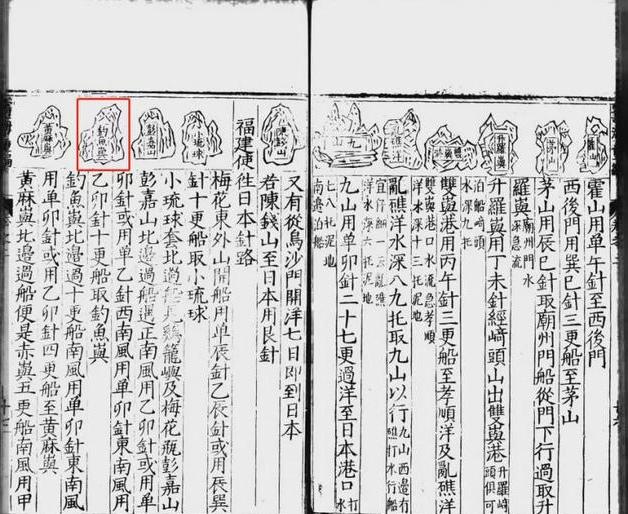 霍山
茅山
升羅嶼
亂礁洋
九山
霍山用單午針至西後門
西後門用巽巳針三更船至茅山
茅山用辰巳針取廟州門船從門下行過取升
羅嶼廟州門水深急流
升羅嶼用丁未針經崎頭山出雙嶼港升羅崎頭俱可
泊船崎頭水深九托
雙嶼港用丙午針三更船至孝順洋及亂礁洋
雙嶼港口水流急孝順洋水深十三托泥地
亂礁洋水深八九托取九山以行九山西邊有礁打水行船
九山用單卯針二十七更過洋至日本港口打水
七八托泥地南邊泊船
琉球
彭嘉山
釣魚嶼
黃麻嶼
又有從烏沙門開洋七日即到日本
若陳錢山至日本用艮針
福建使往日本針路
梅花東外山開船用單辰針乙辰針或用辰巽
針十更船取小琉球
小琉球套北過船見鷄籠嶼及梅花瓶彭嘉山
彭嘉山北邊過船遇正南風用乙卯針或用單
卯針或用單乙針西南風用單卯針東南風用
乙卯針十更船取釣魚嶼
釣魚嶼北邊過十更船南風用單卯針東南風
用單卯針或用乙卯針四更船至黃麻嶼
黃麻嶼北邊過船便是赤嶼五更船南風用甲